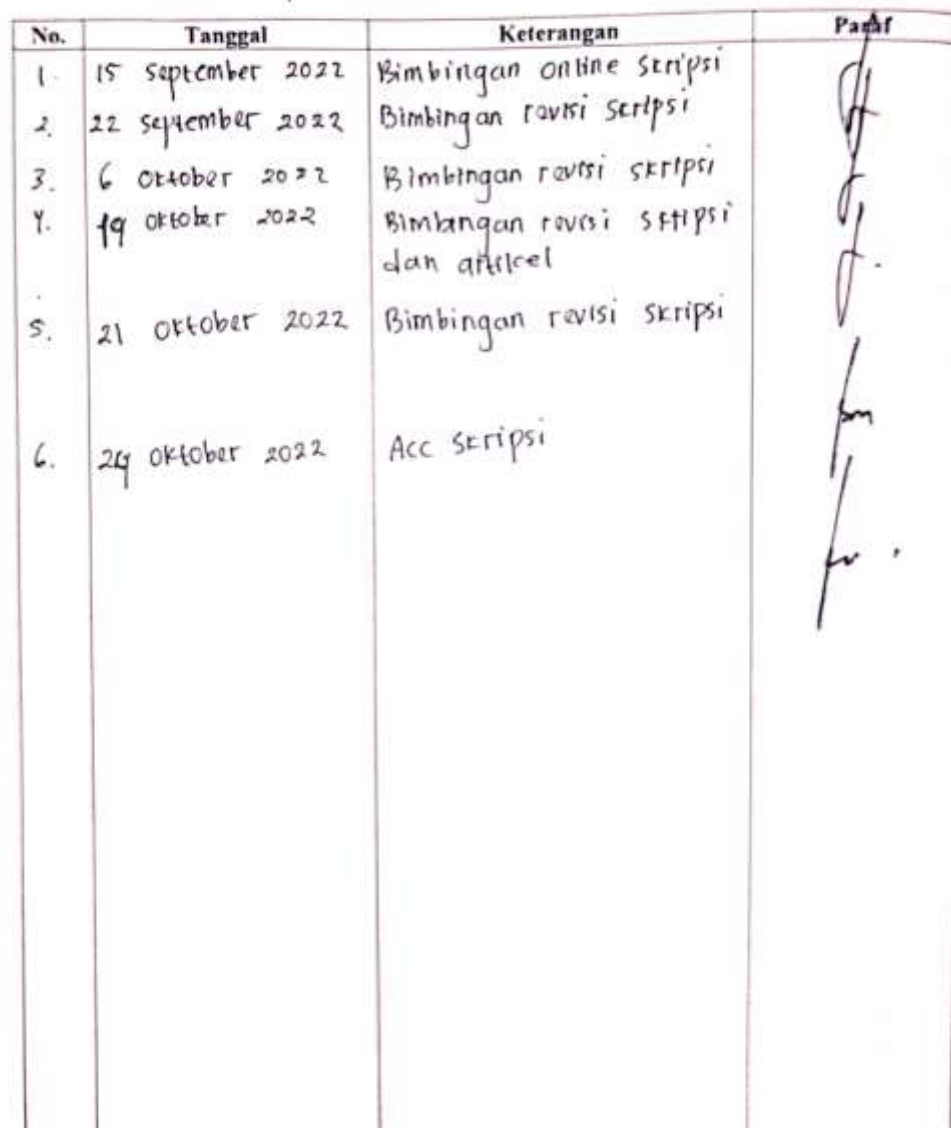 No. Tanggal Keterangan Paraf
1. 15 September 2022 Bimbingan online skripsi
2. 22 September 2022 Bimbingan revisi skripsi
3. 6 Oktober 2022 Bimbingan revisi skripsi
4. 19 Oktober 2022 Bimbingan revisi skripsi
dan artikel
5. 21 Oktober 2022 Bimbingan revisi skripsi
6. Oktober 2022 Acc skripsi